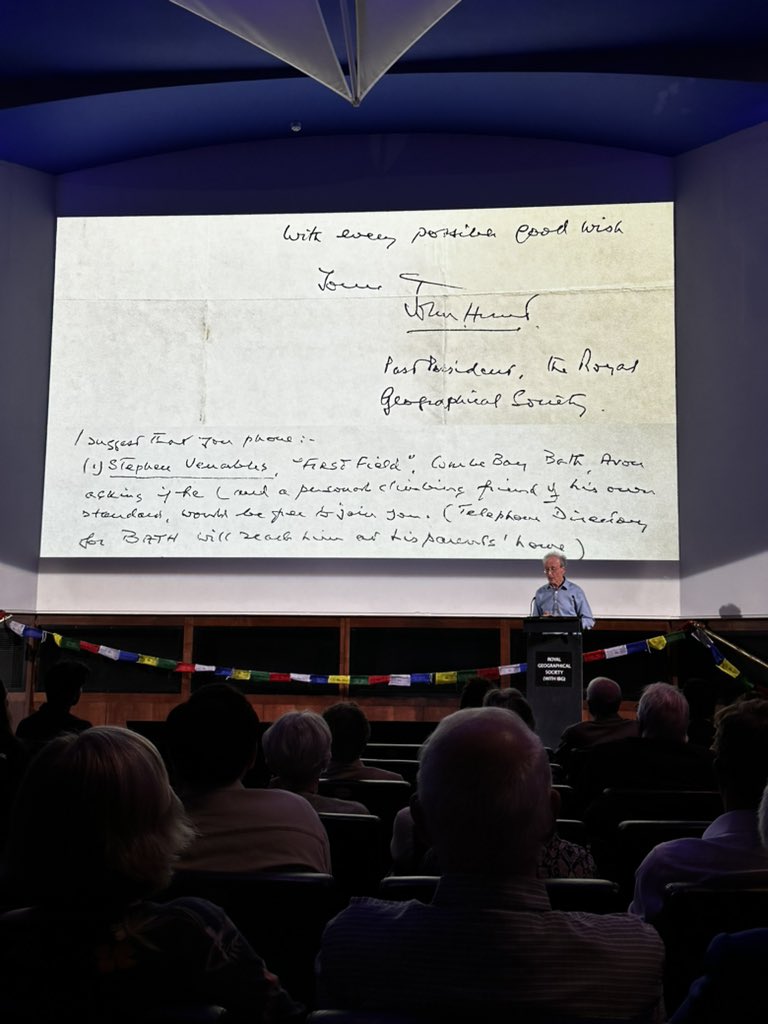 With every possible good wish
John Hunt.
Past President, The Royal
Geographical Society.
I suggest that you phone:-
(1) Stephen Venables, "First Field", Combe Bay Bath, Avon
asking if he (and a personal climbing friend of his own
standard, would be free to join you. (Telephone Directory
for BATH will reach him at his parents' home)
ROYAL
GEOGRAPHICAL
SOCIETY
(WITH IBG)